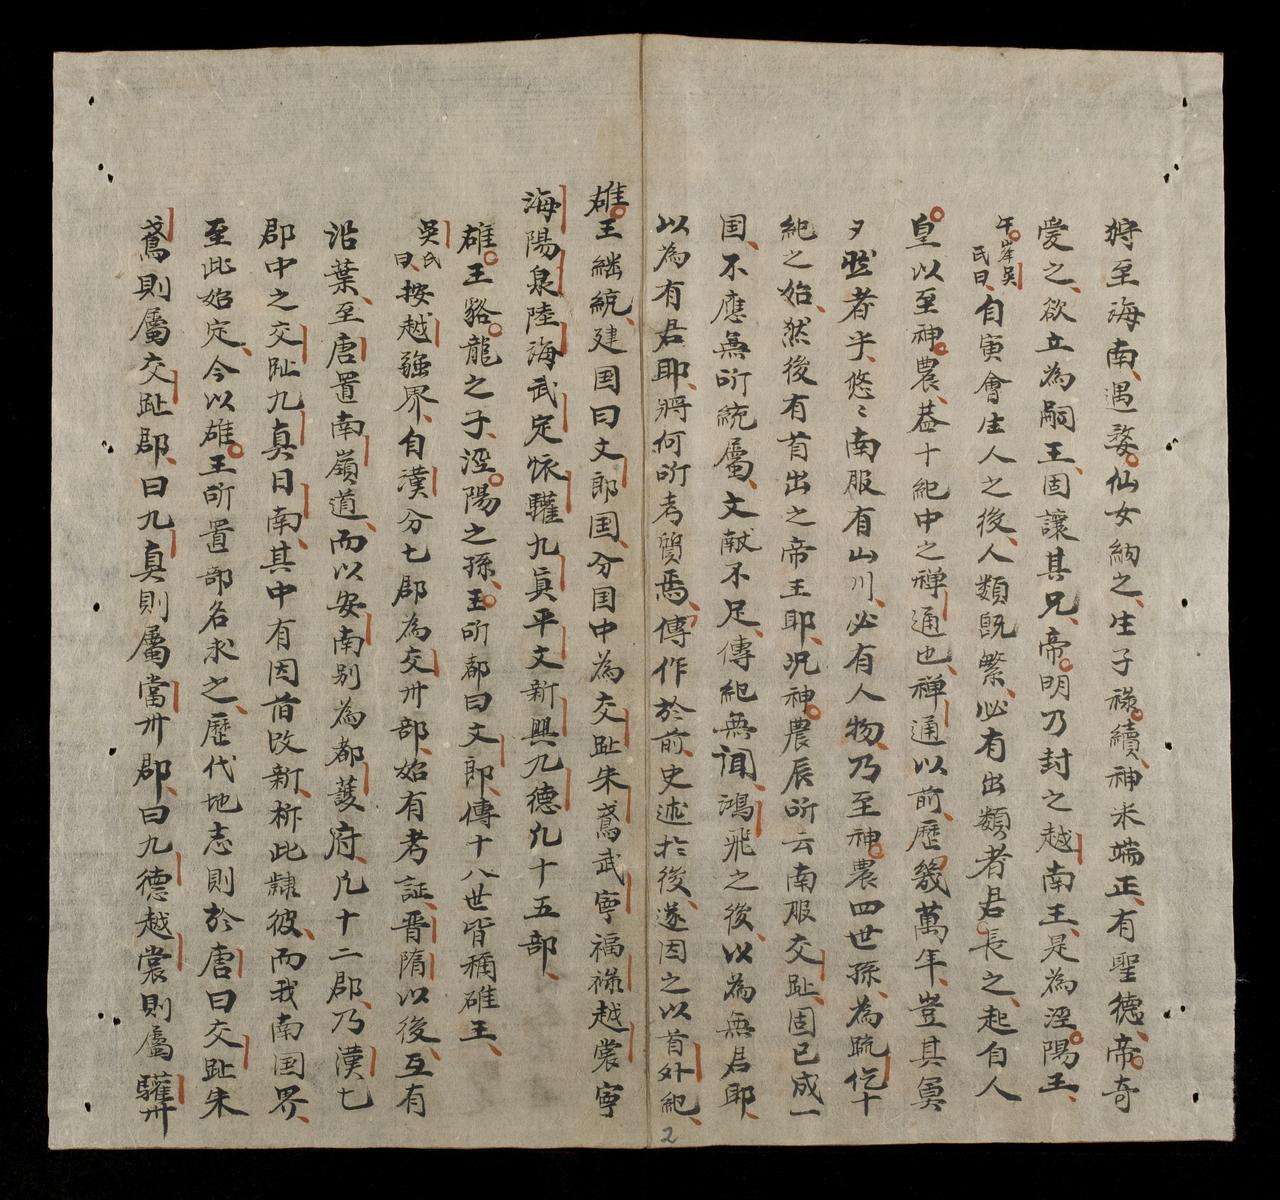 狩至海南遇婺仙女納之生子祿續神米端正有聖德帝奇
愛之欲立為嗣王固讓其兄帝明乃封之越南王是為涇陽王
午峯吳氏曰自寅會生人之後人類旣繁必有出類者君長之起自人
皇以至神農葢十紀中之禅通也禅通以前歷幾萬年豈其冥
夕然者乎悠〻南服有山川必有人物乃至神農四世孫為疏仡十
紀之始然後有首出之帝王耶况神農辰所云南服交趾固已成一
囯不應無所統屬文献不足傳紀無闻鴻飛之後以為無君耶
以為有君耶將何所考質焉傳作於前史述於後遂因之以首外紀
雄王繼統建囯曰文郎囯分囯中為交趾朱鳶武寧福祿越裳寧
海陽泉陸海武定怀驩九真平文新興九德凣十五部
雄王貉龍之子涇陽之孫王所都曰文郎傳十八世皆稱雄王
吳氏曰按越疆界自漢分七郡為交州部始有考証晋隋以後互有
沿葉至唐置南嶺道而以安南别為都護府凣十二郡乃漢七
郡中之交趾九真日南其中有因旧改新析此隸彼而我南囯界
至此始定今以雄王所置部名求之歷代地志則於唐曰交趾朱
鳶則屬交趾郡曰九真則屬當州郡曰九德越裳則屬驩州
2